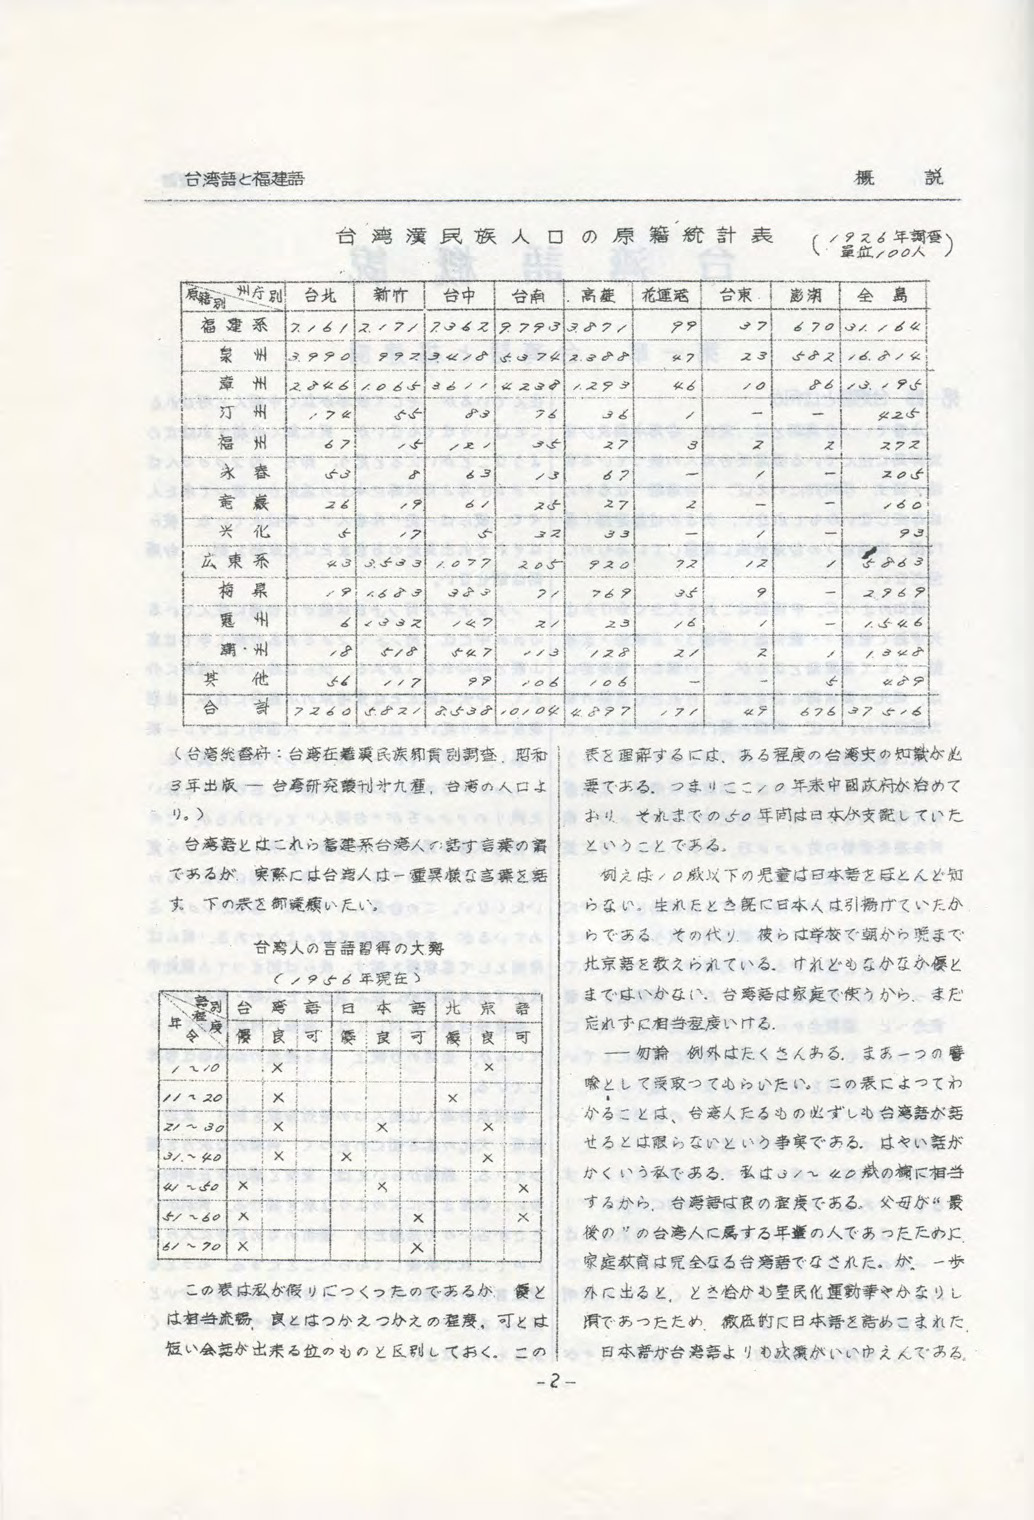 台湾語と福建語 概説
台湾漢民族人口の原籍統計表 (1926年調査 單位100人)
原籍別 州庁別 台北 新竹 台中 台南 高雄 花蓮港 台東 澎湖 全島
福建系 7.161 2.171 7.362 9.793 3.871 99 37 670 31.164
泉州 3.990 992 3418 5374 2.388 47 23 582 16.814
漳州 2846 1.065 3611 4238 1.293 46 10 86 13.195
汀州 174 55 83 76 36 1 — — 425
福州 67 15 121 35 27 3 2 2 272
永春 53 8 63 13 67 — 1 — 205
竜巌 26 19 61 25 27 2 — — 160
兴化 5 17 5 32 33 — 1 — 93
広東系 43 3.533 1.077 205 920 72 12 1 5863
梅県 19 1.683 383 71 769 35 9 — 2969
惠州 6 1332 147 21 23 16 1 — 1.546
潮州 18 518 547 113 128 21 2 1 1.348
其他 56 117 99 106 106 — — 5 489
合計 7260 5.821 8.538 10104 4.897 171 49 676 37.516
(台湾総督府:台湾在籍漢民族郷貫別調査、昭和
3年出版 — 台湾研究叢刊㐧九種、台湾の人口よ
り。)
台湾語とはこれら福建系台湾人の話す言葉の謂
であるが、実際には台湾人は一種異様な言葉を話
す。下の表を御覧願いたい。
台湾人の言語習得の大勢
(1956年現在)
年令 語別 程度 台湾語 日本語 北京語
優 良 可 優 良 可 優 良 可
1~10 × ×
11~20 × ×
21~30 × × ×
31~40 × × ×
41~50 × × ×
51~60 × × ×
61~70 × ×
この表は私が仮りにつくったのであるが、優と
は相当流暢、良とはつかえつかえの程度、可とは
短い会話が出来る位のものと区別しておく。この
表を理解するには、ある程度の台湾史の知識が必
要である。つまりここ10年来中國政府が治めて
おり、それまでの50年間は日本が支配していた
ということである。
例えば10歳以下の児童は日本語をほとんど知
らない。生れたとき既に日本人は引揚げていたか
らである。その代り、彼らは学校で朝から晩まで
北京語を教えられている。けれどもなかなか優と
まではいかない。台湾語は家庭で使うから、まだ
忘れずに相当程度いける。
— 勿論、例外はたくさんある。まあ一つの譬
喩として受取ってもらいたい。この表によつてわ
かることは、台湾人たるもの必ずしも台湾語が話
せるとは限らないという事実である。はやい話が
かくいう私である。私は31~40歳の欄に相当
するから、台湾語は良の程度である。父母が〝最
後の〟の台湾人に属する年輩の人であつたために、
家庭教育は完全なる台湾語でなされた。が、一歩
外に出ると、とき恰かも皇民化運動華やかなりし
頃であつたため、徹底的に日本語を詰めこまれた。
日本語が台湾語よりも成績がいいゆえんである。
-2-